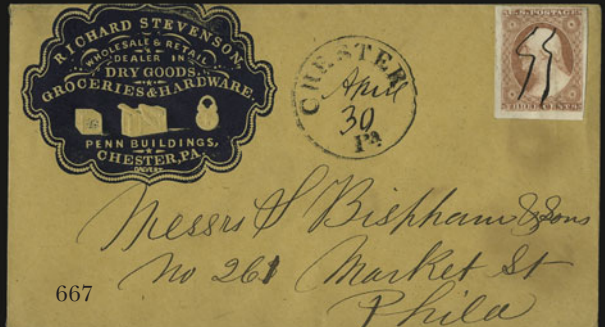 RICHARD STEVENSON,
WHOLESALE & RETAIL
DEALER IN
DRY GOODS,
GROCERIES & HARDWARE.
PENN BUILDINGS,
CHESTER, PA.
CHESTER
April
30
Pa
U.S. POSTAGE
THREE CENTS
Messrs S Bispham & Sons
No 261 Market St
Phila
667